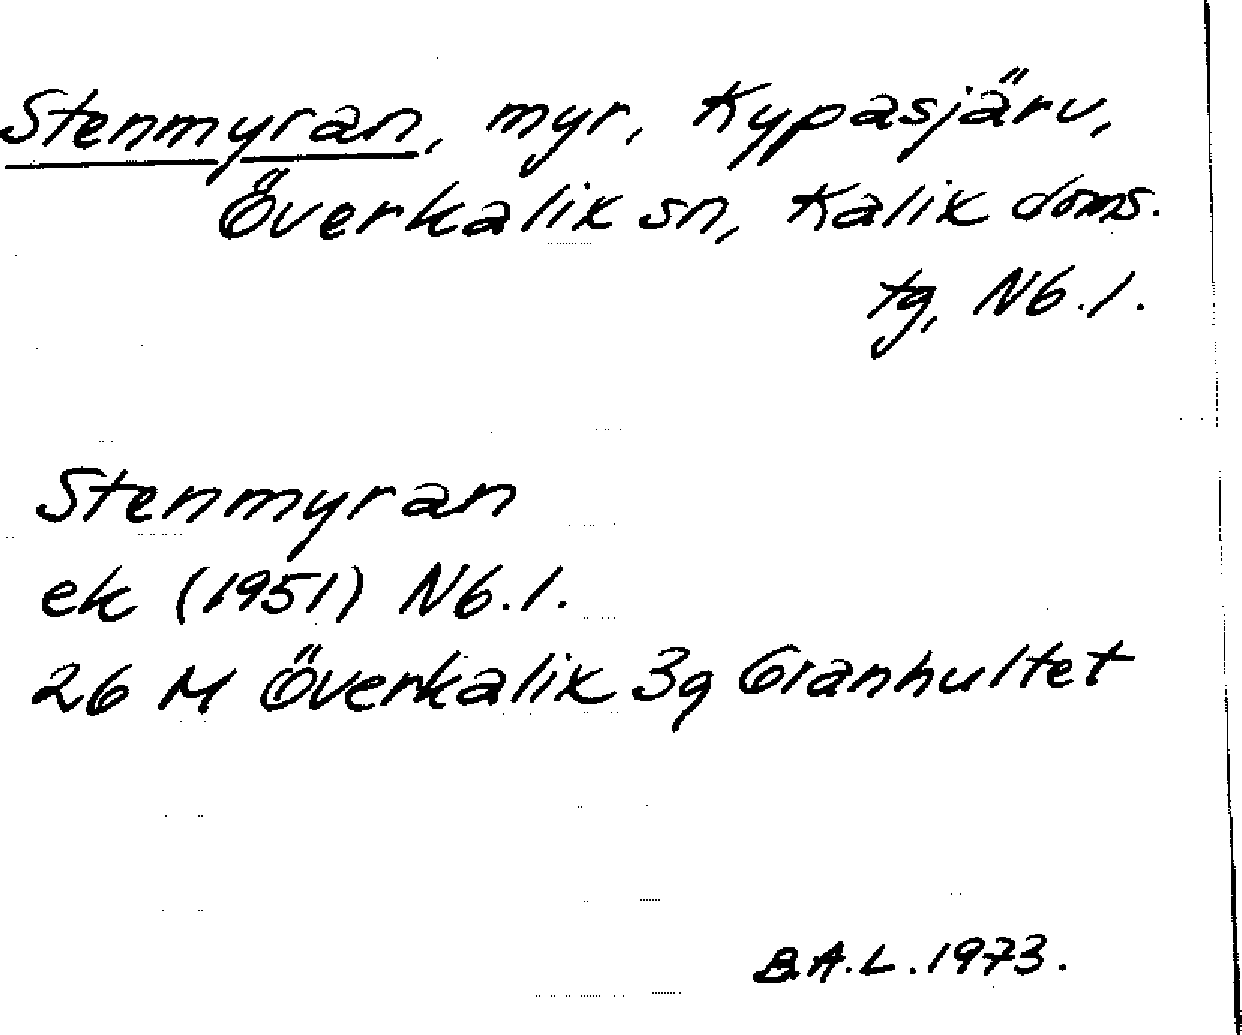 Stenmyran, myr, Kypasjärv,
Överkalix sn, Kalix doms.
tg, Nb.l.
Stenmyran
ek (1951) Nb.l.
26 M Överkalix 3g Granhultet
B.A.L. 1973.